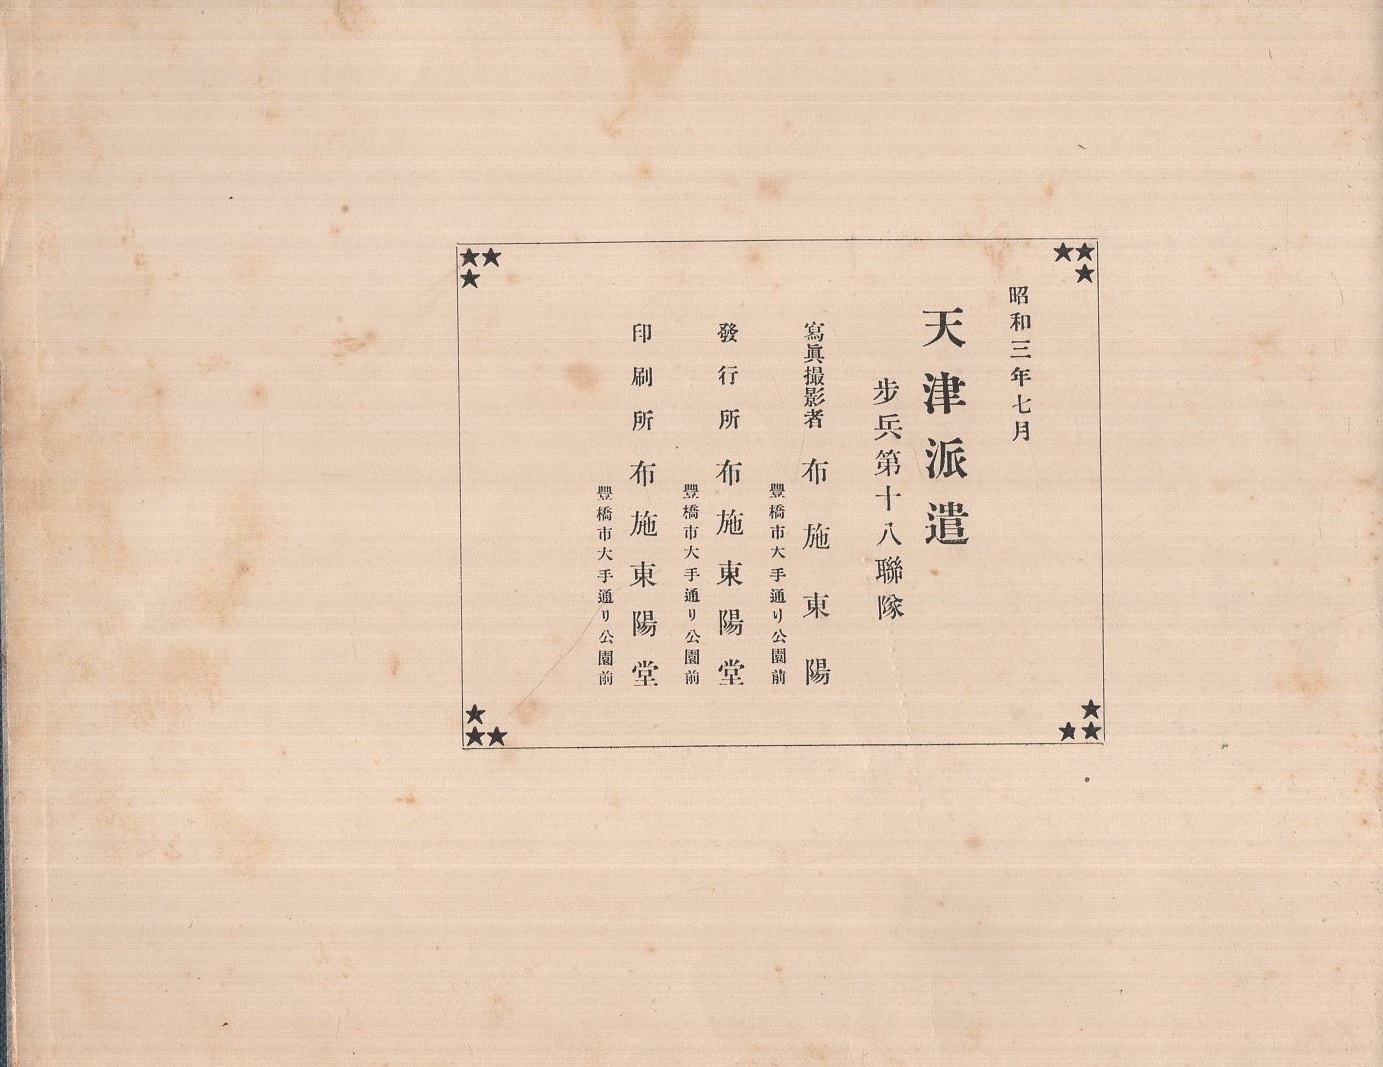 昭和三年七月
天津派遣
步兵第十八聯隊
寫眞撮影者 布施東陽
豐橋市大手通り公園前
發行所 布施東陽堂
豐橋市大手通り公園前
印刷所 布施東陽堂
豐橋市大手通り公園前